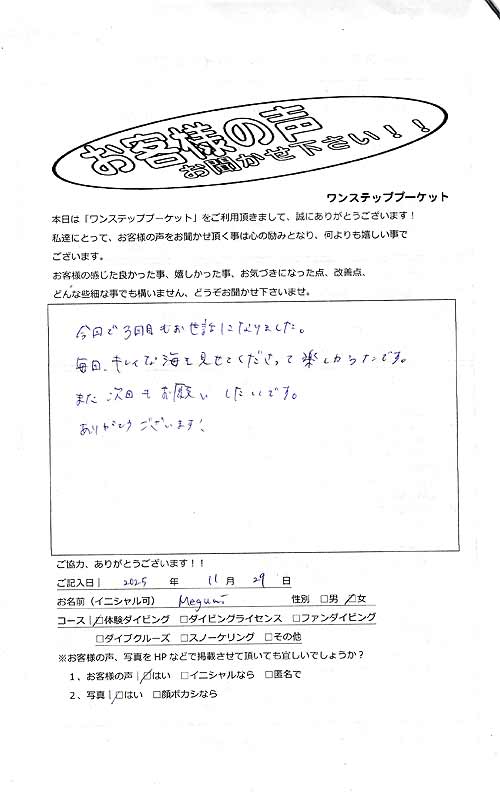 お客様の声
お聞かせ下さい！！
ワンステッププーケット
本日は「ワンステッププーケット」をご利用頂きまして、誠にありがとうございます！
私達にとって、お客様の声をお聞かせ頂く事は心の励みとなり、何よりも嬉しい事で
ございます。
お客様の感じた良かった事、嬉しかった事、お気づきになった点、改善点、
どんな些細な事でも構いません、どうぞお聞かせ下さいませ。
今回で3回目もお世話になりました。
毎日、キレイな海を見せてくださって楽しかったです。
また次回もお願いしたいです。
ありがとうございます！
ご協力、ありがとうございます！！
ご記入日｜ 2025 年 11 月 29 日
お名前（イニシャル可） Megumi 性別 □男 ☑女
コース｜☑体験ダイビング □ダイビングライセンス □ファンダイビング
□ダイブクルーズ □スノーケリング □その他
※お客様の声、写真をHPなどで掲載させて頂いても宜しいでしょうか？
１、お客様の声｜☑はい □イニシャルなら □匿名で
２、写真｜☑はい □顔ボカシなら